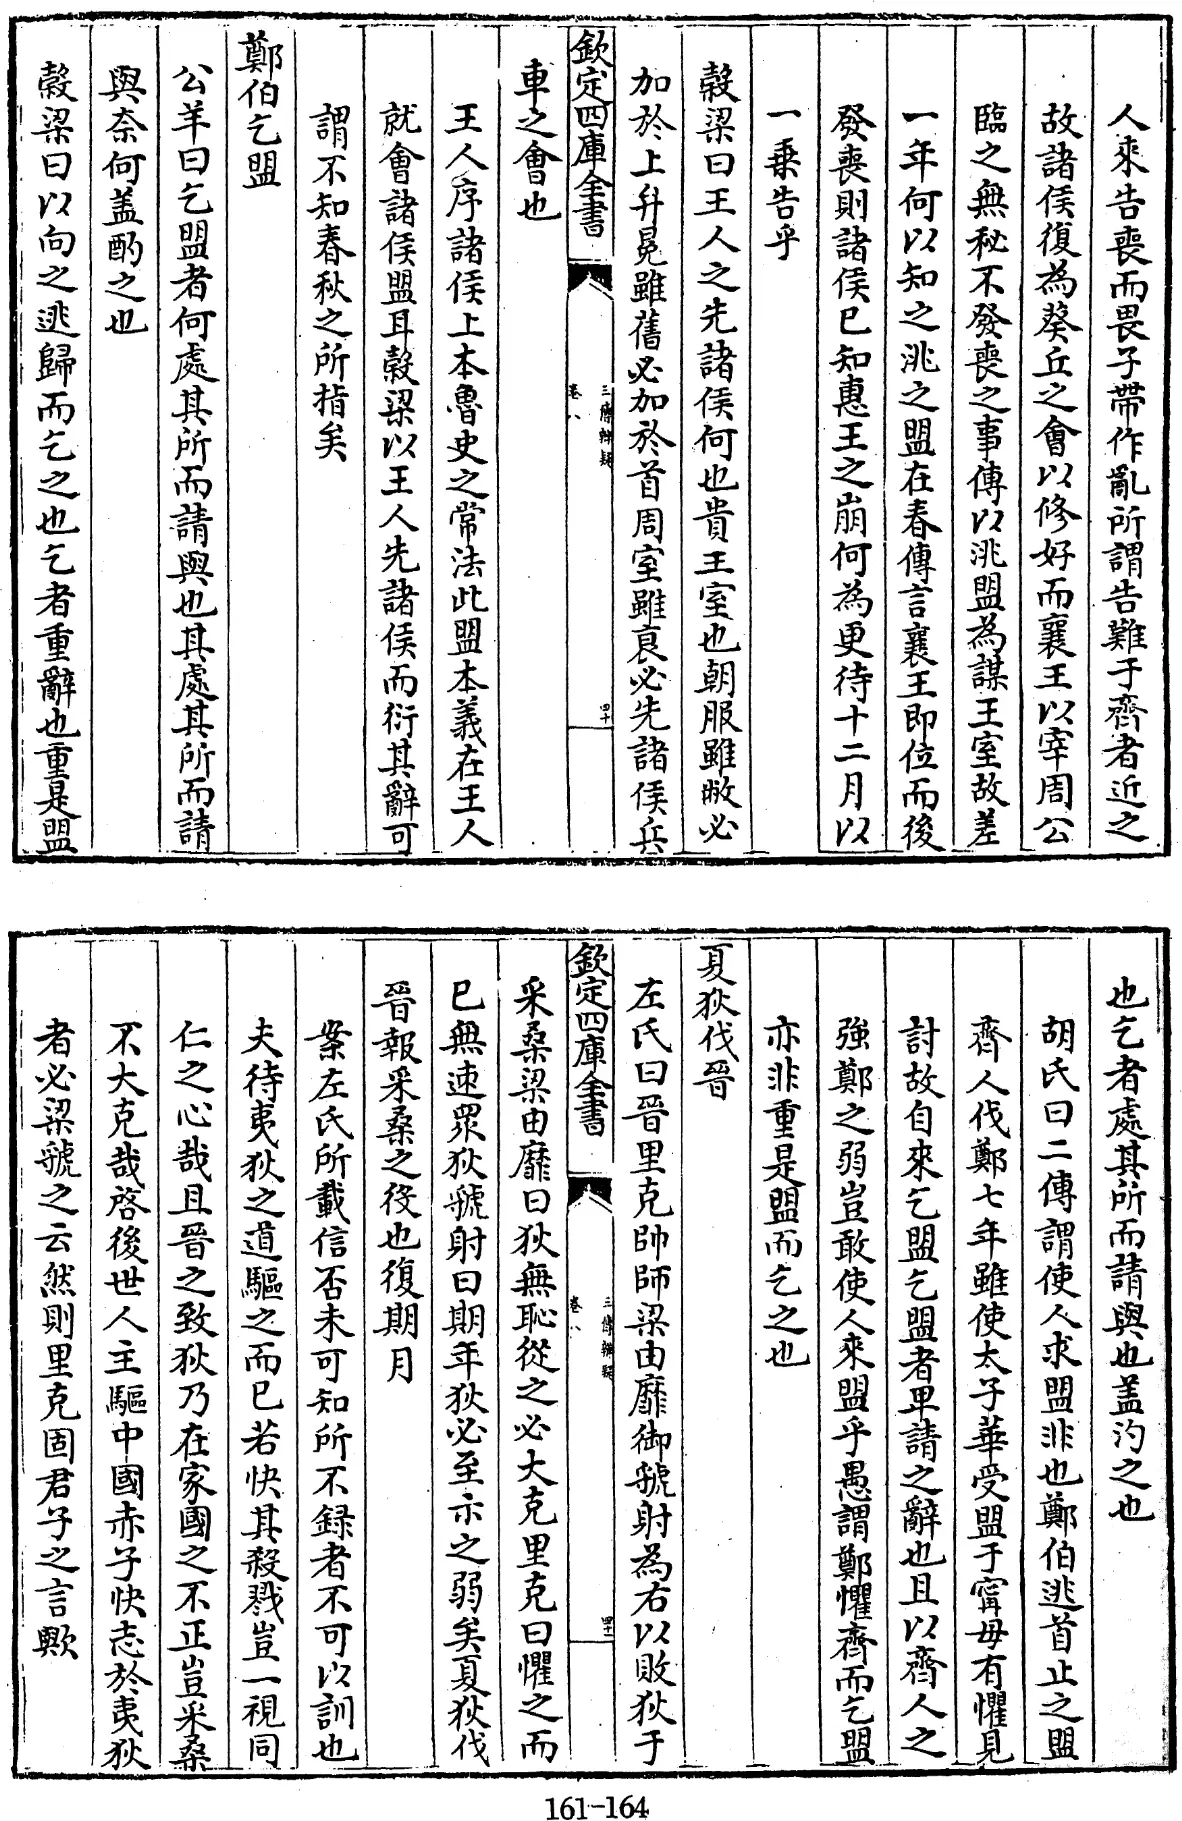 人來告喪而畏子帶作亂所謂告難于齊者近之
故諸侯復為葵丘之會以修好而襄王以宰周公
臨之無秘不發喪之事傳以洮盟為謀王室故差
一年何以知之洮之盟在春傳言襄王即位而後
發喪則諸侯已知惠王之崩何為更待十二月以
一乗告乎
穀梁曰王人之先諸侯何也貴王室也朝服雖敝必
加於上弁冕雖舊必加於首周室雖衰必先諸侯兵
欽定四庫全書
三傳辨疑
卷八
四十
車之會也
王人序諸侯上本魯史之常法此盟本義在王人
就會諸侯盟耳穀梁以王人先諸侯而衍其辭可
謂不知春秋之所指矣
鄭伯乞盟
公羊曰乞盟者何處其所而請與也其處其所而請
與奈何盖酌之也
穀梁曰以向之逃歸而乞之也乞者重辭也重是盟
也乞者處其所而請與也盖汋之也
胡氏曰二傳謂使人求盟非也鄭伯逃首止之盟
齊人伐鄭七年雖使太子華受盟于甯毋有懼見
討故自來乞盟乞盟者卑請之辭也且以齊人之
強鄭之弱豈敢使人來盟乎愚謂鄭懼齊而乞盟
亦非重是盟而乞之也
夏狄伐晉
左氏曰晉里克帥師梁由靡御虢射為右以敗狄于
欽定四庫全書
三傳辨疑
卷八
四十一
采桑梁由靡曰狄無恥從之必大克里克曰懼之而
已無速眾狄虢射曰期年狄必至示之弱矣夏狄伐
晉報采桑之役也復期月
案左氏所載信否未可知所不録者不可以訓也
夫待夷狄之道驅之而已若快其殺戮豈一視同
仁之心哉且晉之致狄乃在家國之不正豈采桑
不大克哉啓後世人主驅中國赤子快志於夷狄
者必梁虢之云然則里克固君子之言歟
161-164